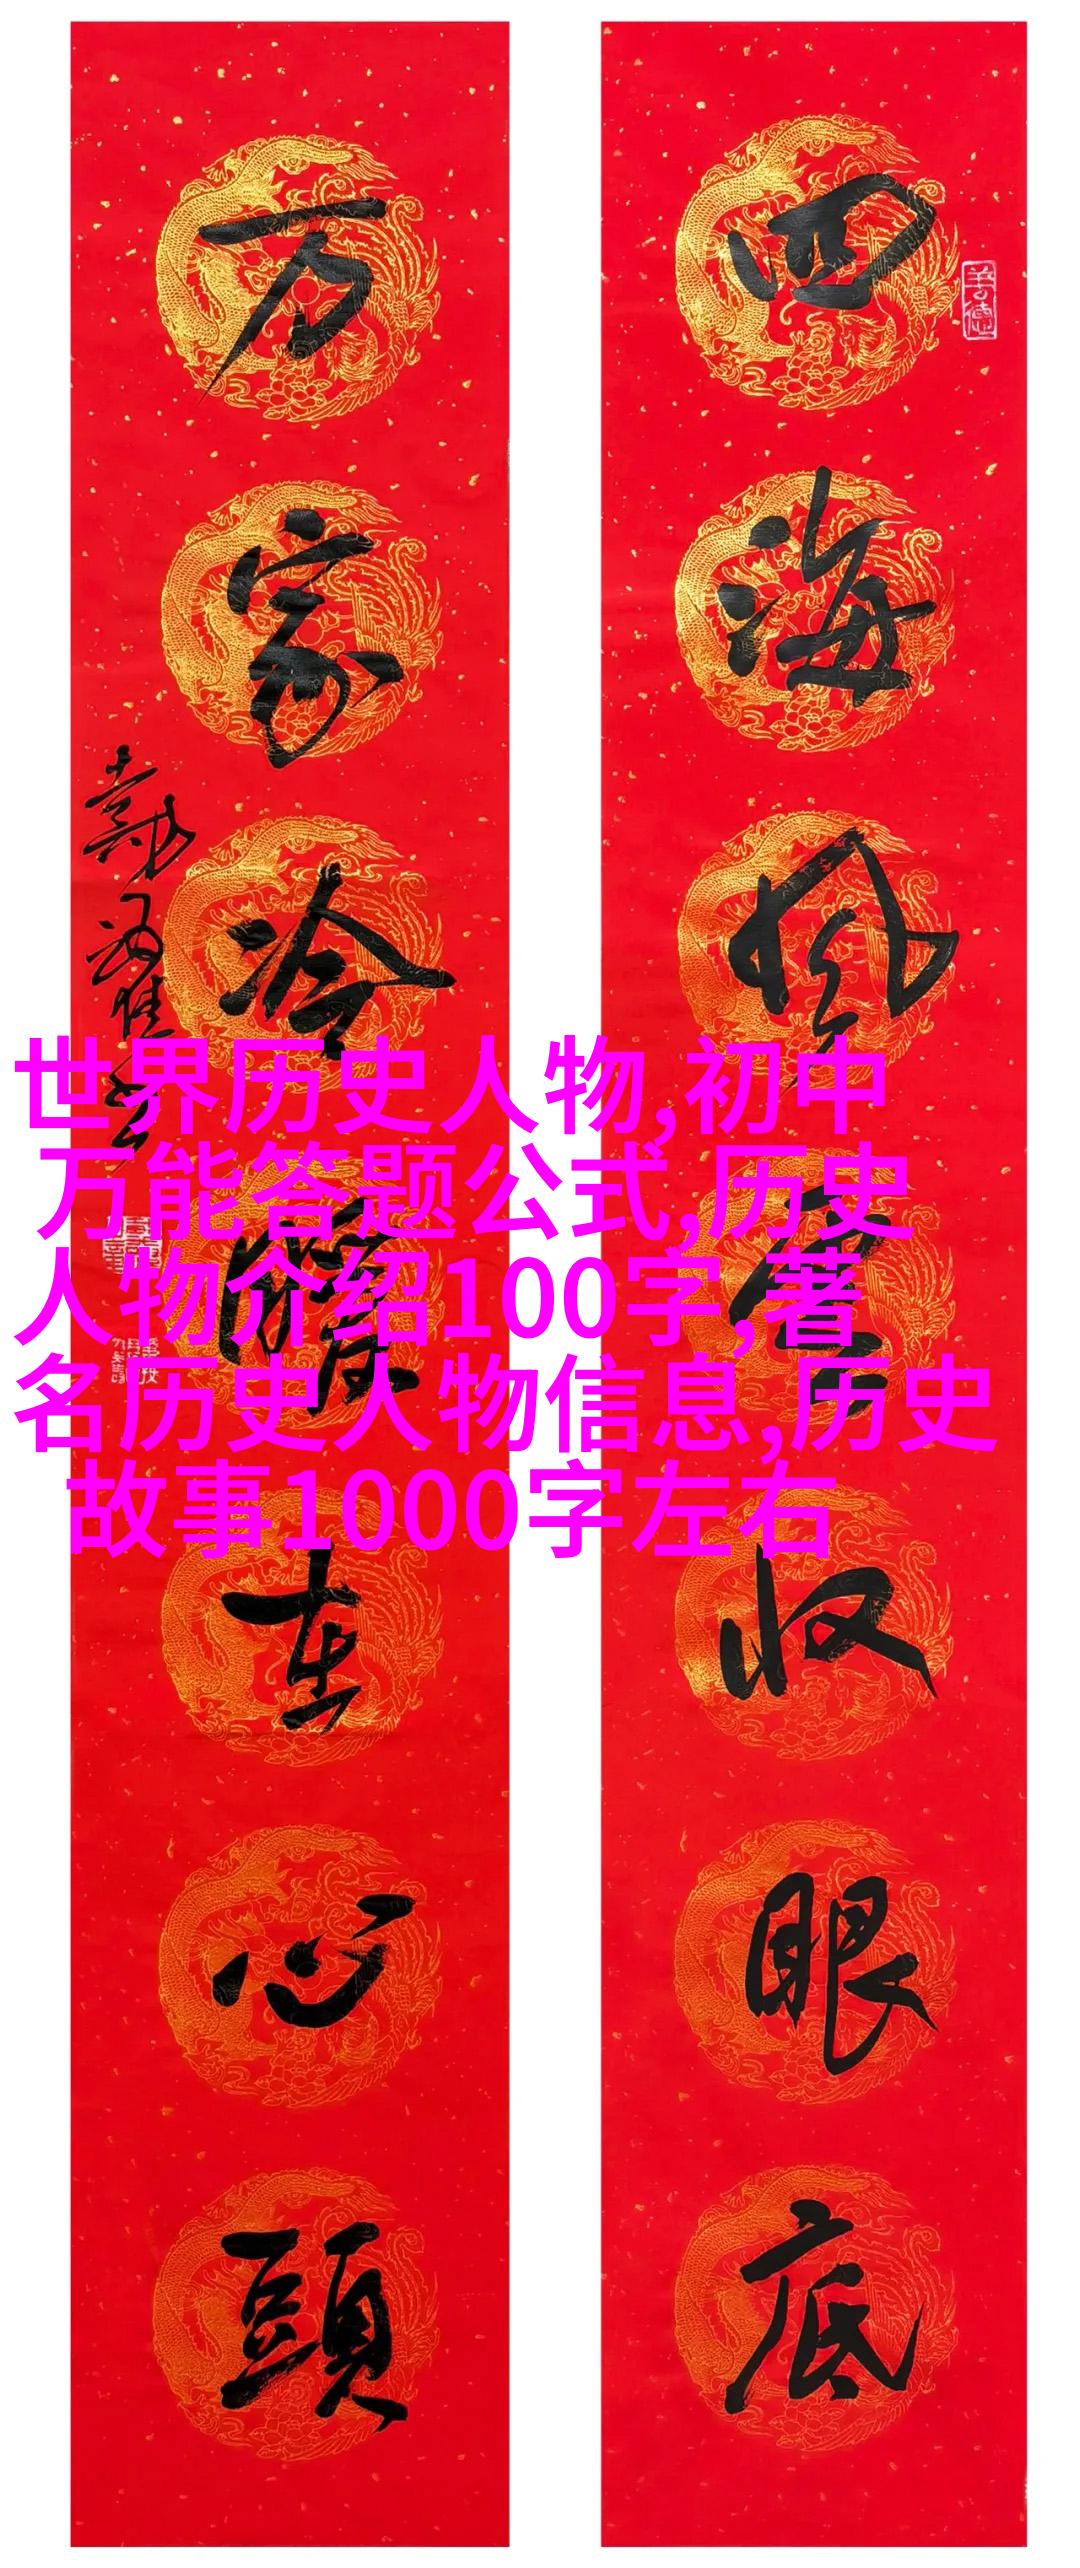 四海风云收眼底
万家冷暖在心頭
善德
世界历史人物,初中
万能答题公式,历史
人物介绍100字,著
名历史人物信息,历史
故事1000字左右